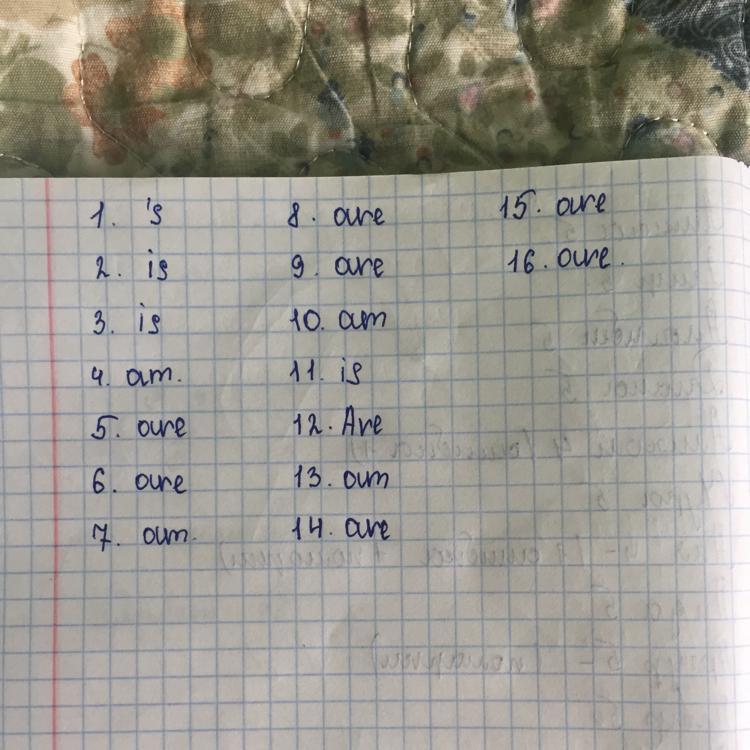 1. 's
2. is
3. is
4. am.
5. are
6. are
7. am.
8. are
9. are
10. am
11. is
12. Are
13. am
14. are
15. are
16. are.